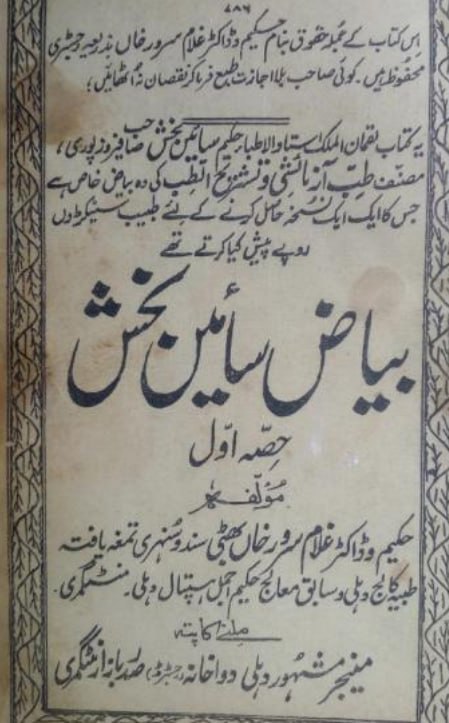 ۷۸۶
اس کتاب کے جملہ حقوق بنام حکیم و ڈاکٹر غلام سرور خاں بذریعہ رجسٹری
محفوظ ہیں۔ کوئی صاحب بلا اجازت طبع فرما کر نقصان نہ اٹھائیں؛
یہ کتاب لقمان الملک استاد الاطبا حکیم سائیں بخش صاحب فیروزپوری،
مصنف طب آزمائشی و تشریح الطب کی وہ بیاض خاص ہے
جس کا ایک ایک نسخہ حاصل کرنے کے لئے طبیب سینکڑوں
روپے پیش کیا کرتے تھے
بیاض سائیں بخش
حصّہ اوّل
مؤلفہ
حکیم و ڈاکٹر غلام سرور خاں بھٹی سند و سنہری تمغہ یافتہ
طبیہ کالج دہلی و سابق معالج حکیم اجمل ہسپتال دہلی۔ منٹگمری۔
ملنے کا پتہ
مینیجر مشہور دہلی دواخانہ (رجسٹرڈ) صدر بازار منٹگمری